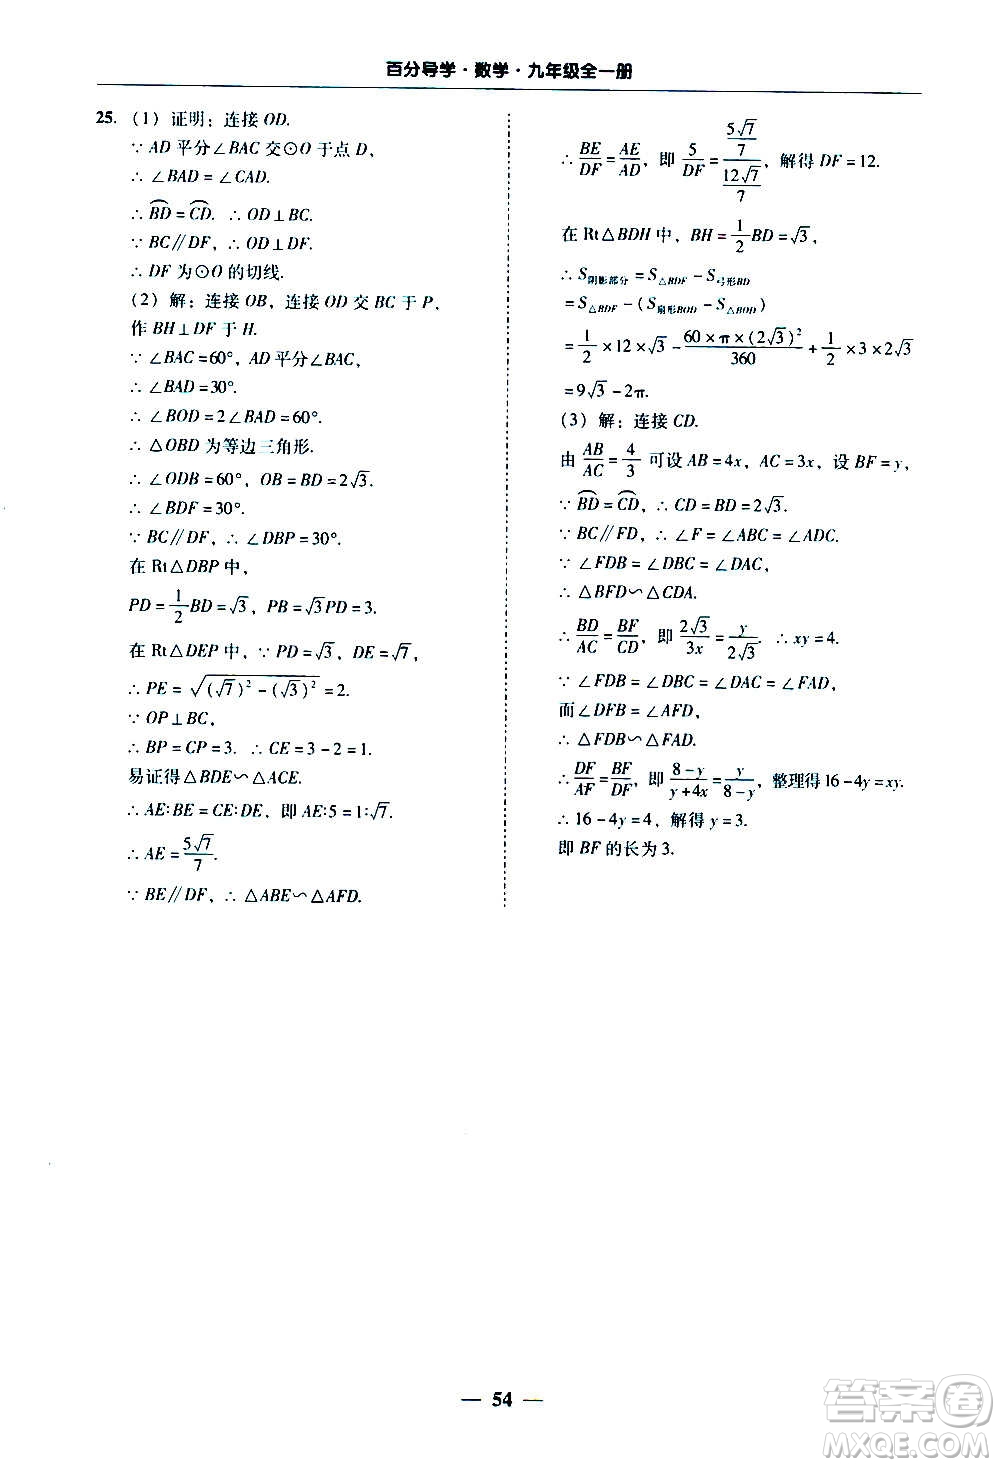 百分导学·数学·九年级全一册
25. (1) 证明：连接 OD.
∵ AD 平分∠BAC 交⊙O 于点 D，
∴ ∠BAD = ∠CAD.
∴ $\overset{\frown}{BD}$ = $\overset{\frown}{CD}$. ∴ OD⊥BC.
∵ BC∥DF，∴ OD⊥DF.
∴ DF 为⊙O 的切线.
(2) 解：连接 OB，连接 OD 交 BC 于 P，
作 BH⊥DF 于 H.
∵ ∠BAC = 60°，AD 平分∠BAC，
∴ ∠BAD = 30°.
∴ ∠BOD = 2∠BAD = 60°.
∴ △OBD 为等边三角形.
∴ ∠ODB = 60°，OB = BD = 2√3.
∴ ∠BDF = 30°.
∵ BC∥DF，∴ ∠DBP = 30°.
在 Rt△DBP 中，
PD = $\frac{1}{2}$BD = √3，PB = √3PD = 3.
在 Rt△DEP 中，∵ PD = √3，DE = √7，
∴ PE = $\sqrt{(\sqrt{7})^2 - (\sqrt{3})^2}$ = 2.
∵ OP⊥BC，
∴ BP = CP = 3. ∴ CE = 3 - 2 = 1.
易证得△BDE∽△ACE.
∴ AE∶BE = CE∶DE，即 AE∶5 = 1∶√7.
∴ AE = $\frac{5\sqrt{7}}{7}$.
∵ BE∥DF，∴ △ABE∽△AFD.
∴ $\frac{BE}{DF} = \frac{AE}{AD}$，即 $\frac{5}{DF} = \frac{\frac{5\sqrt{7}}{7}}{\frac{12\sqrt{7}}{7}}$，解得 DF = 12.
在 Rt△BDH 中，BH = $\frac{1}{2}$BD = √3，
∴ $S_{阴影部分} = S_{△BDF} - S_{弓形BD}$
= $S_{△BDF} - (S_{扇形BOD} - S_{△BOD})$
= $\frac{1}{2}$ × 12 × √3 - $\frac{60 × π × (2\sqrt{3})^2}{360}$ + $\frac{1}{2}$ × 3 × 2√3
= 9√3 - 2π.
(3) 解：连接 CD.
由 $\frac{AB}{AC} = \frac{4}{3}$ 可设 AB = 4x，AC = 3x，设 BF = y，
∵ $\overset{\frown}{BD}$ = $\overset{\frown}{CD}$，∴ CD = BD = 2√3.
∵ BC∥FD，∴ ∠F = ∠ABC = ∠ADC.
∵ ∠FDB = ∠DBC = ∠DAC，
∴ △BFD∽△CDA.
∴ $\frac{BD}{AC} = \frac{BF}{CD}$，即 $\frac{2\sqrt{3}}{3x} = \frac{y}{2\sqrt{3}}$. ∴ xy = 4.
∵ ∠FDB = ∠DBC = ∠DAC = ∠FAD，
而∠DFB = ∠AFD，
∴ △FDB∽△FAD.
∴ $\frac{DF}{AF} = \frac{BF}{DF}$，即 $\frac{8-y}{y+4x} = \frac{y}{8-y}$，整理得16 - 4y = xy.
∴ 16 - 4y = 4，解得 y = 3.
即 BF 的长为 3.
— 54 —
答案圈
MXQE.COM